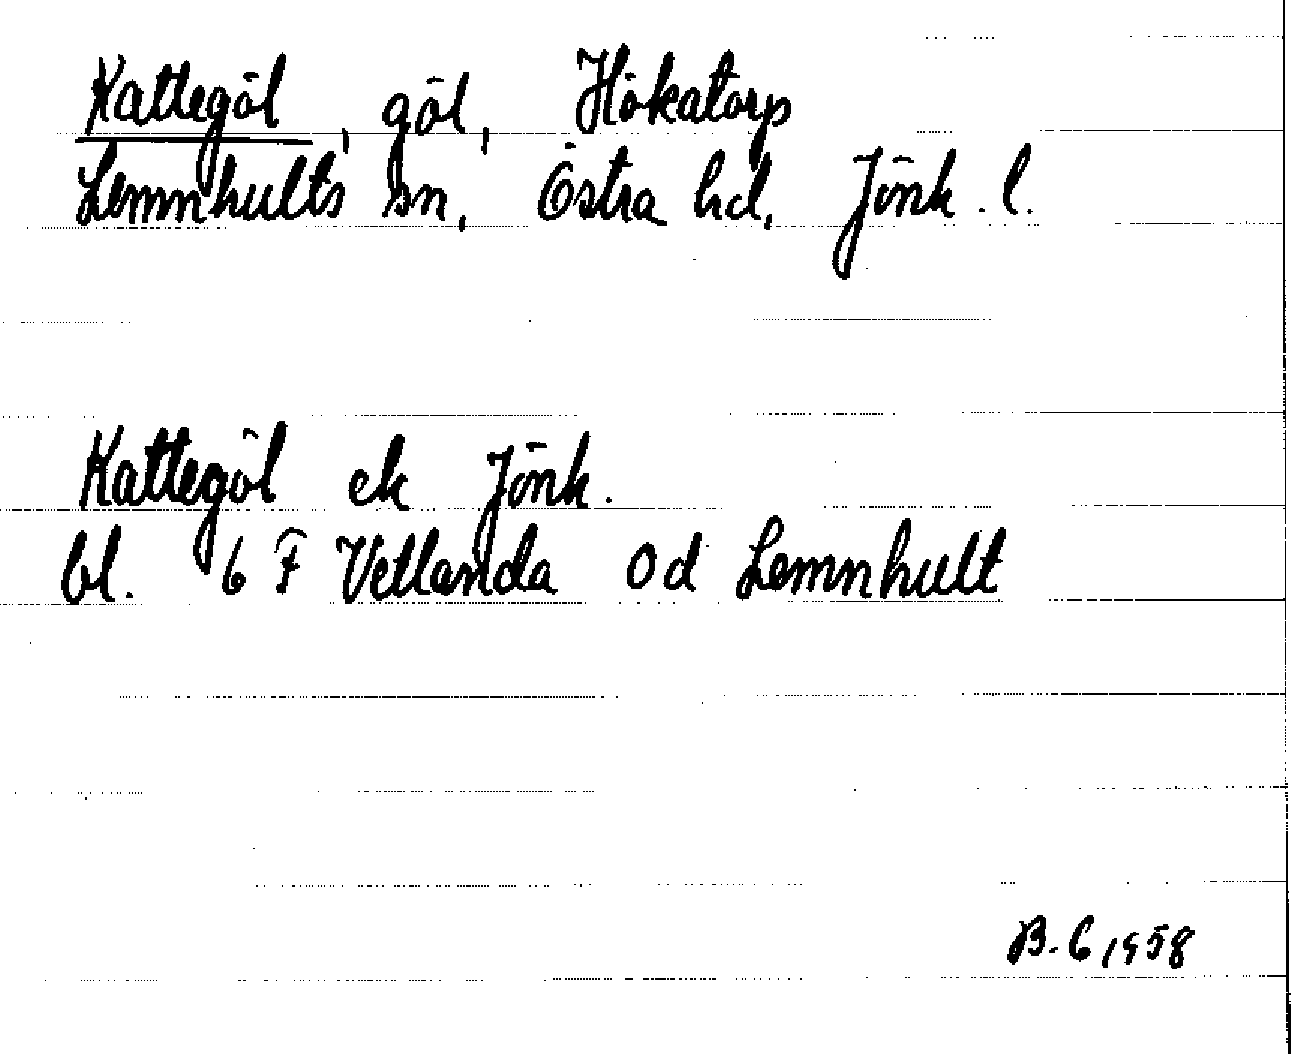 Kattegöl, göl, Hökatorp
Lemnhults sn, Östra hd, Jönk. l.
Kattegöl ek Jönk.
bl. 6 F Vetlanda 0d Lemnhult
B. C 1958